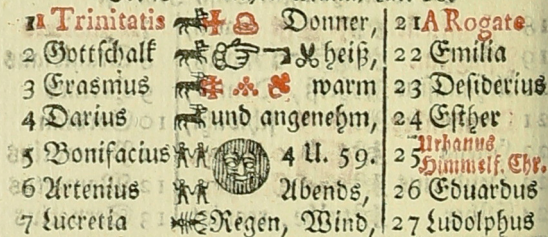 1 A Trinitatis Donner, 21 A Rogate
2 Gottschalk heiß, 22 Emilia
3 Erasmus warm 23 Desiderius
4 Darius und angenehm, 24 Esther
5 Bonifacius 4 U. 59. 25 Urbanus Himmelf. Chr.
6 Artenius Abends, 26 Eduardus
7 Lucretia Regen, Wind, 27 Ludolphus